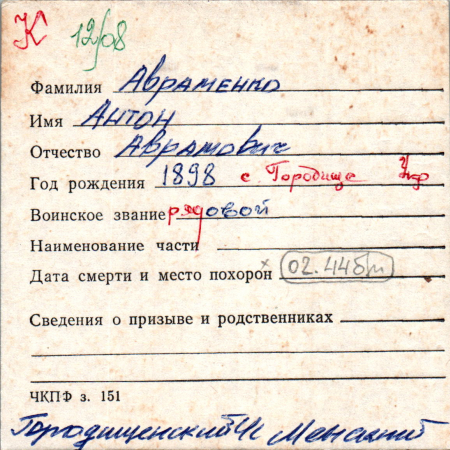 К 12/08
Фамилия Авраменко
Имя Антон
Отчество Аврамович
Год рождения 1898 с. Городище
Воинское звание рядовой
Наименование части
Дата смерти и место похорон × 02.44б/м
Сведения о призыве и родственниках
ЧКПФ з. 151
Городищенский Менский